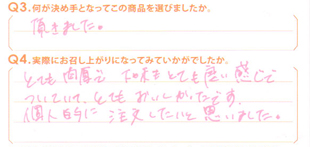 Q3.何が決め手となってこの商品を選びましたか。
頂きました。
Q4.実際にお召し上がりになってみていかがでしたか。
とても肉厚で 加木もとても濃い感じで
ついていて、とてもおいしかったです。
個人的に注文したいと思いました。